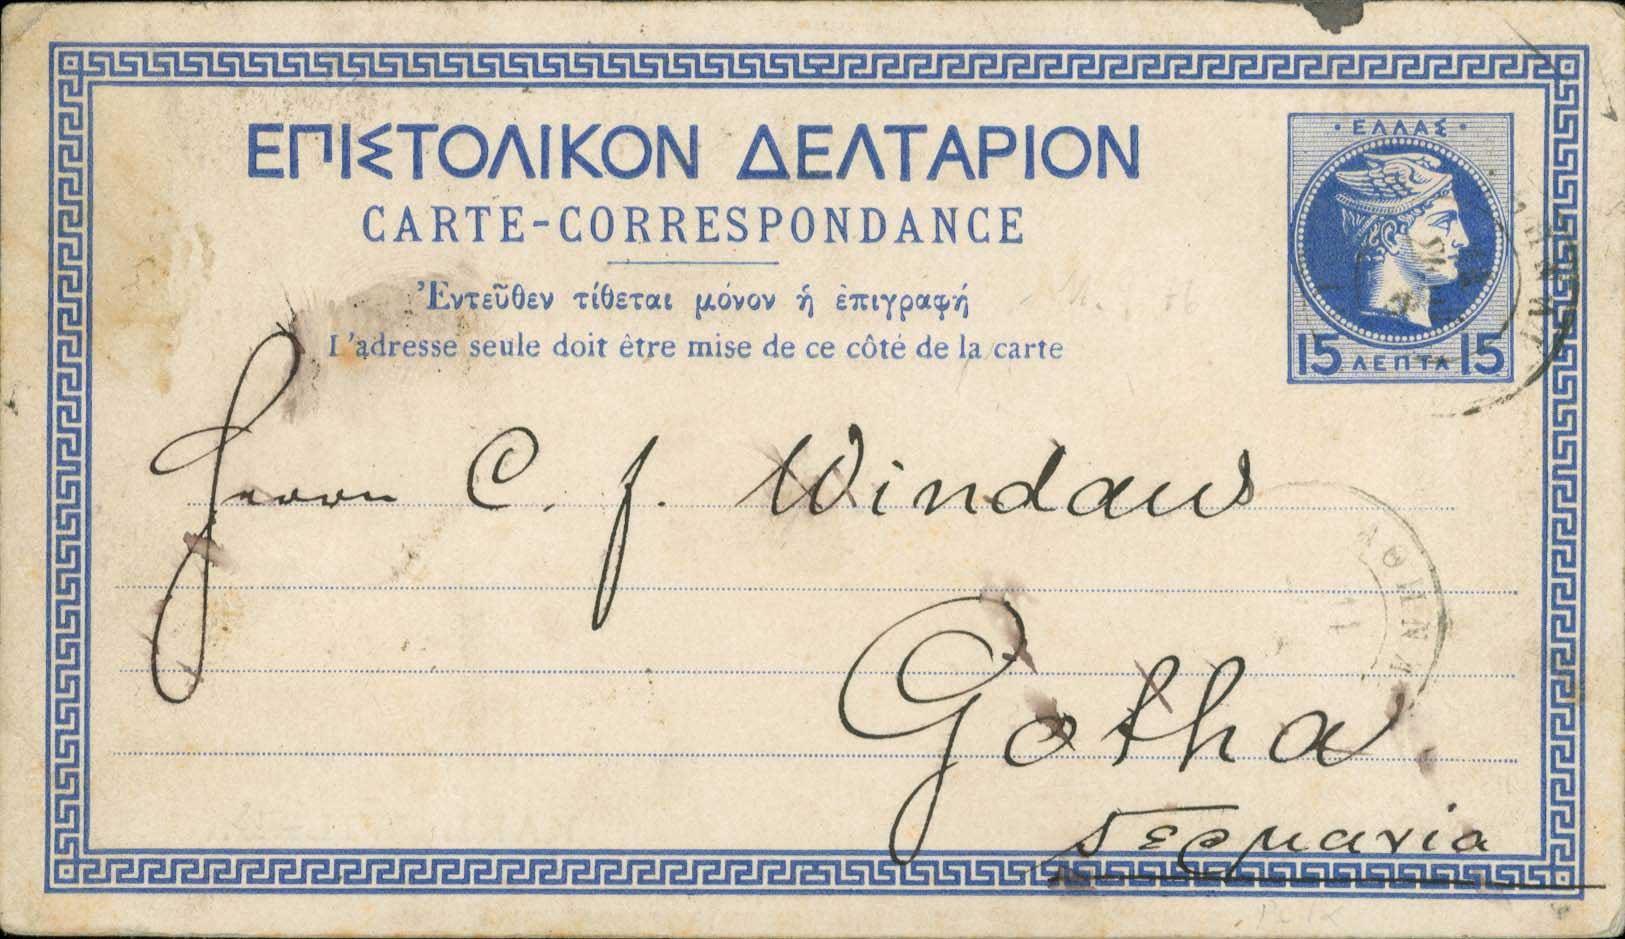 ΕΠΙΣΤΟΛΙΚΟΝ ΔΕΛΤΑΡΙΟΝ
CARTE-CORRESPONDANCE
Ἐντεῦθεν τίθεται μόνον ἡ ἐπιγραφή
L'adresse seule doit être mise de ce côté de la carte
·ΕΛΛΑΣ·
15 ΛΕΠΤΑ 15
Herrn C. f. Windaus
Gotha
Γερμανία
ΑΘΗΝΑΙ
ΑΘΗΝΑΙ